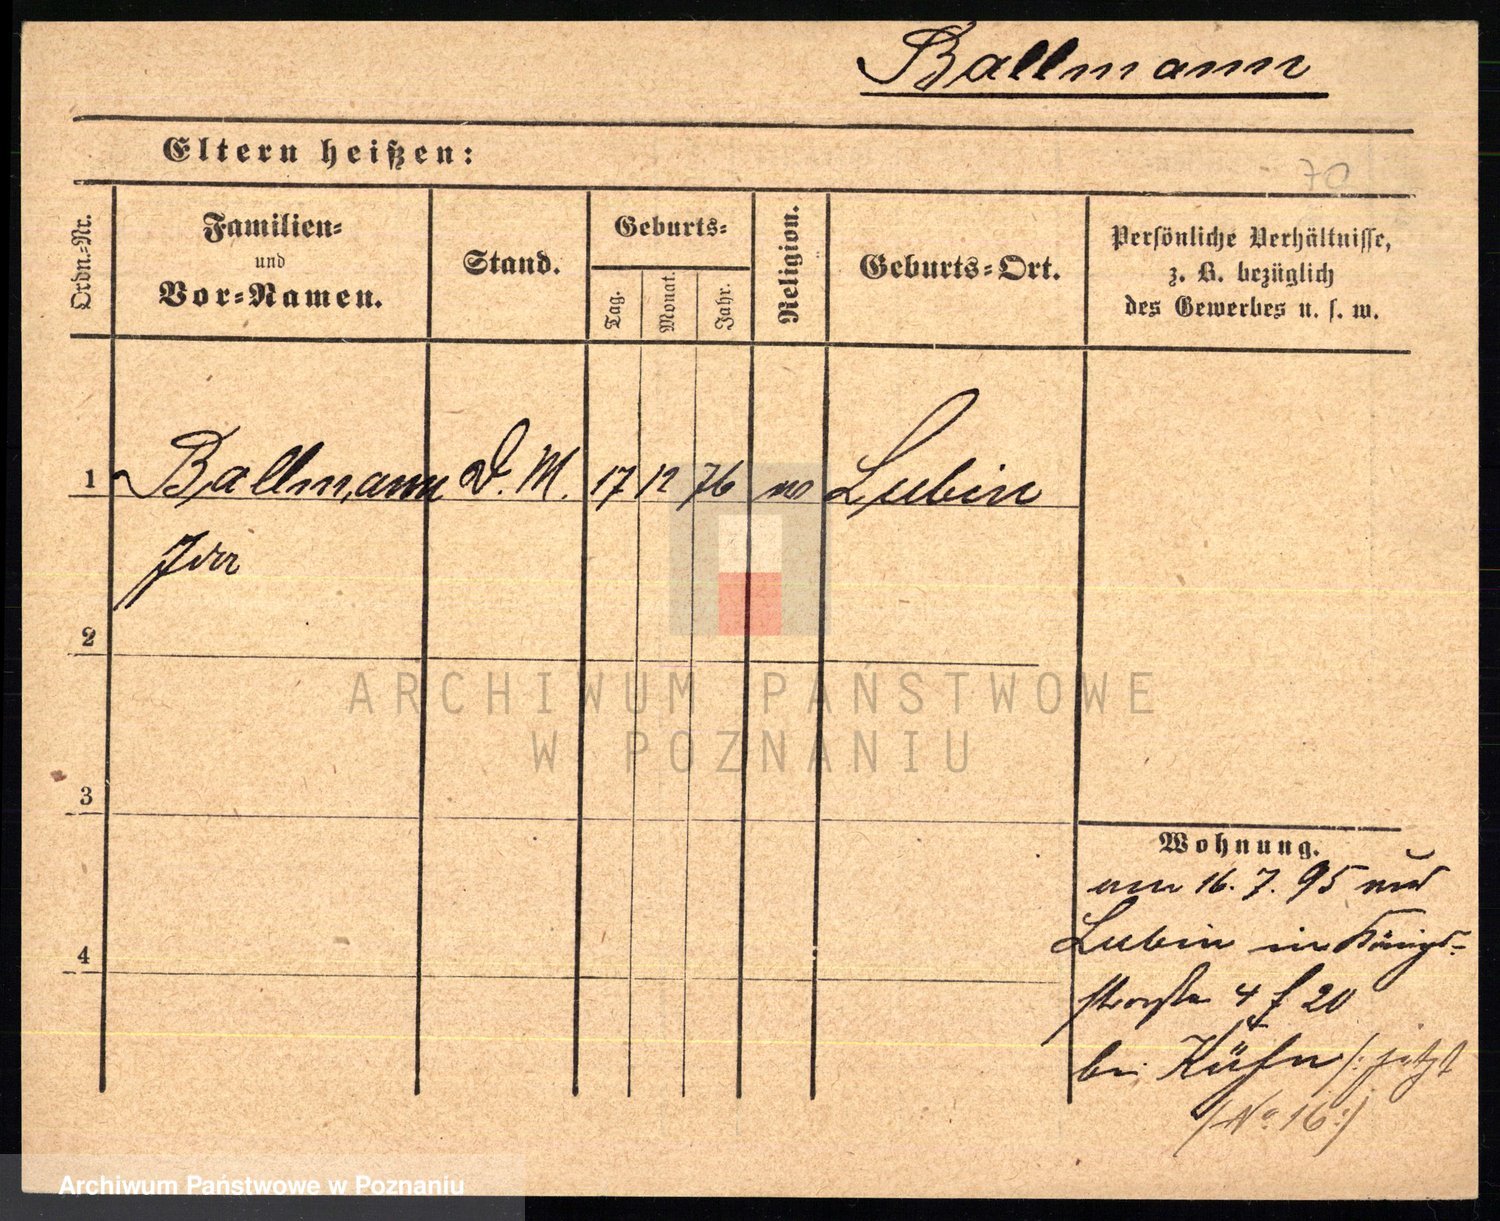 Ballmann
Eltern heißen:
70
Ordn.-Nr.
Familien-
und
Vor-Namen.
Stand.
Geburts-
Tag.
Monat.
Jahr.
Religion.
Geburts-Ort.
Persönliche Verhältnisse,
z. B. bezüglich
des Gewerbes u. s. w.
1 Ballmann D. M. 17 12 76 Lubin
Ida
2
ARCHIWUM PAŃSTWOWE
W POZNANIU
3
Wohnung.
am 16. 7. 95 aus
Lubin in Königs-
straße 4 f 20
4
bei Kühn /: jetzt
(No 16 :)
Archiwum Państwowe w Poznaniu